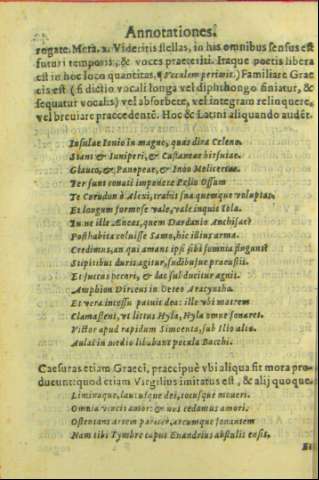 Annotationes.
rogate. Meta. 2. Videritis stellas, in his omnibus sensus est
futuri temporis, & voces præteriti. Itaque poetis libera
est in hoc loco quantitas. (Vocalem perimit.) Familiare Græ
cis est (si dictio vocali longa vel diphthongo finiatur, &
sequatur vocalis) vel absorbere, vel integram relinquere,
vel breuiare præcedentē. Hoc & Latini aliquando audēt.
Insulae Ionio in magno, quas dira Celeno.
Stant & Iuniperi, & Castaneae hirsutae.
Glauco, & Panopeae, & Inoo Melicertae.
Ter sunt conati imponere Pelio Ossam
Te Corudon ô Alexi, trahit sua quemque voluptas.
Et longum formose vale, vale inquit Iola.
Tu ne ille Aeneas, quem Dardanio Anchisae?
Posthabita coluisse Samo, hic illius arma.
Credimus, an qui amant ipsi sibi somnia fingunt
Stipitibus duris agitur, sudibusue praeustis.
Et succus pecori, & lac subducitur agnis.
Amphion Dircaeus in Acteo Aracyntho.
Et vera incessu patuit dea: ille vbi matrem
Clamassent, vt littus Hyla, Hyla omne sonaret.
Victor apud rapidum Simoenta, sub Ilio alto.
Aulaï in medio libabant pocula Bacchi.
Cæsuras etiam Græci, præcipuè vbi aliqua fit mora pro=
ducunt: quod etiam Virgilius imitatus est, & alij quoque.
Liminaque, laurusque dei, totusque moueri.
Omnia vincit amor: & nos cedamus amori.
Ostentans artem pariter, arcumque sonantem
Nam tibi Tymbre caput Euandrius abstulit ensis.